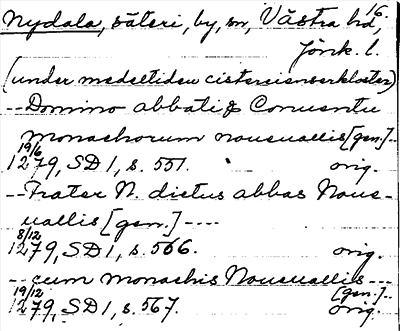 Nydala, säteri, by, sn, Västra hd, 16.
Jönk. l.
(under medeltiden cistercienserkloster)
-- Domino abbati & Conuentu
monachorum noueuallis [gen.] --
19/6
1279, SD 1, s. 551. orig.
-- Frater N. dictus abbas Noue-
uallis [gen.] ----
8/12
1279, SD 1, s. 566. orig.
-- cum monachis Noueuallis ---
19/12 [gen.] --
1279, SD 1, s. 567. orig.